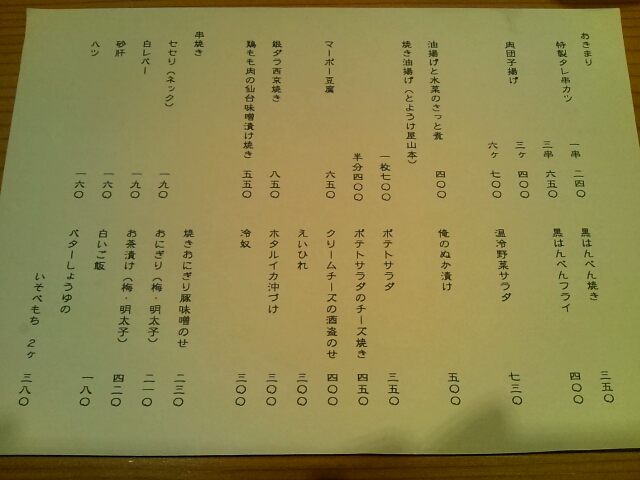 おきまり
特製タレ串カツ
一串 二四〇
三串 六五〇
肉団子揚げ
三ヶ 四〇〇
六ヶ 七〇〇
油揚げと水菜のさっと煮 四〇〇
焼き油揚げ（とようけ屋山本）
一枚七〇〇
半分四〇〇
マーボー豆腐 六五〇
銀ダラ西京焼き 八五〇
鶏もも肉の仙台味噌漬け焼き 五五〇
串焼き
セセリ（ネック） 一九〇
白レバー 一九〇
砂肝 一六〇
ハツ 一六〇
黒はんぺん焼き 三五〇
黒はんぺんフライ 四〇〇
温冷野菜サラダ 七三〇
俺のぬか漬け 五〇〇
ポテトサラダ 三五〇
ポテトサラダのチーズ焼き 四五〇
クリームチーズの酒盗のせ 四〇〇
えいひれ 三〇〇
ホタルイカ沖づけ 三〇〇
冷奴 三〇〇
焼きおにぎり豚味噌のせ 二三〇
おにぎり（梅・明太子） 二一〇
お茶漬け（梅・明太子） 四二〇
白いご飯 一八〇
バターしょうゆの
いそべもち 2ヶ 三八〇